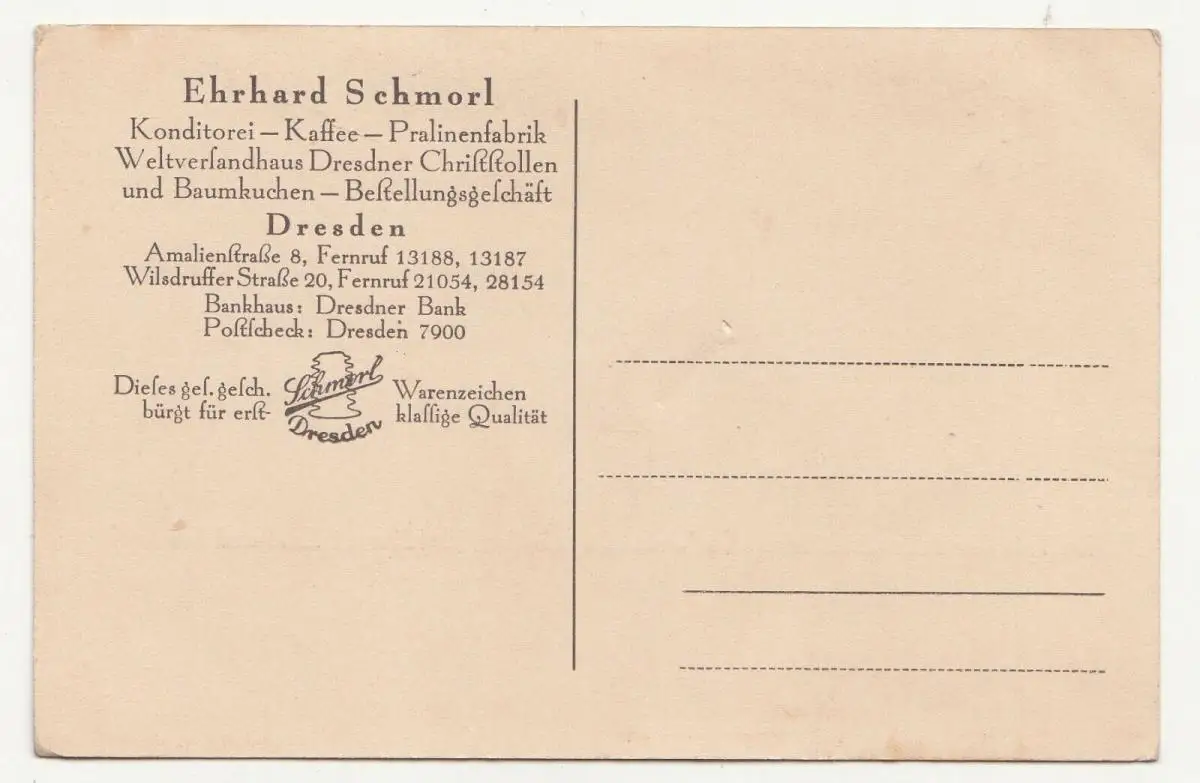 Ehrhard Schmorl
Konditorei – Kaffee – Pralinenfabrik
Weltverſandhaus Dresdner Chriſtſtollen
und Baumkuchen – Beſtellungsgeſchäft
Dresden
Amalienſtraße 8, Fernruf 13188, 13187
Wilsdruffer Straße 20, Fernruf 21054, 28154
Bankhaus: Dresdner Bank
Poſtſcheck: Dresden 7900
Dieſes geſ. geſch. Schmorl Warenzeichen
bürgt für erſt- Dresden klaſſige Qualität